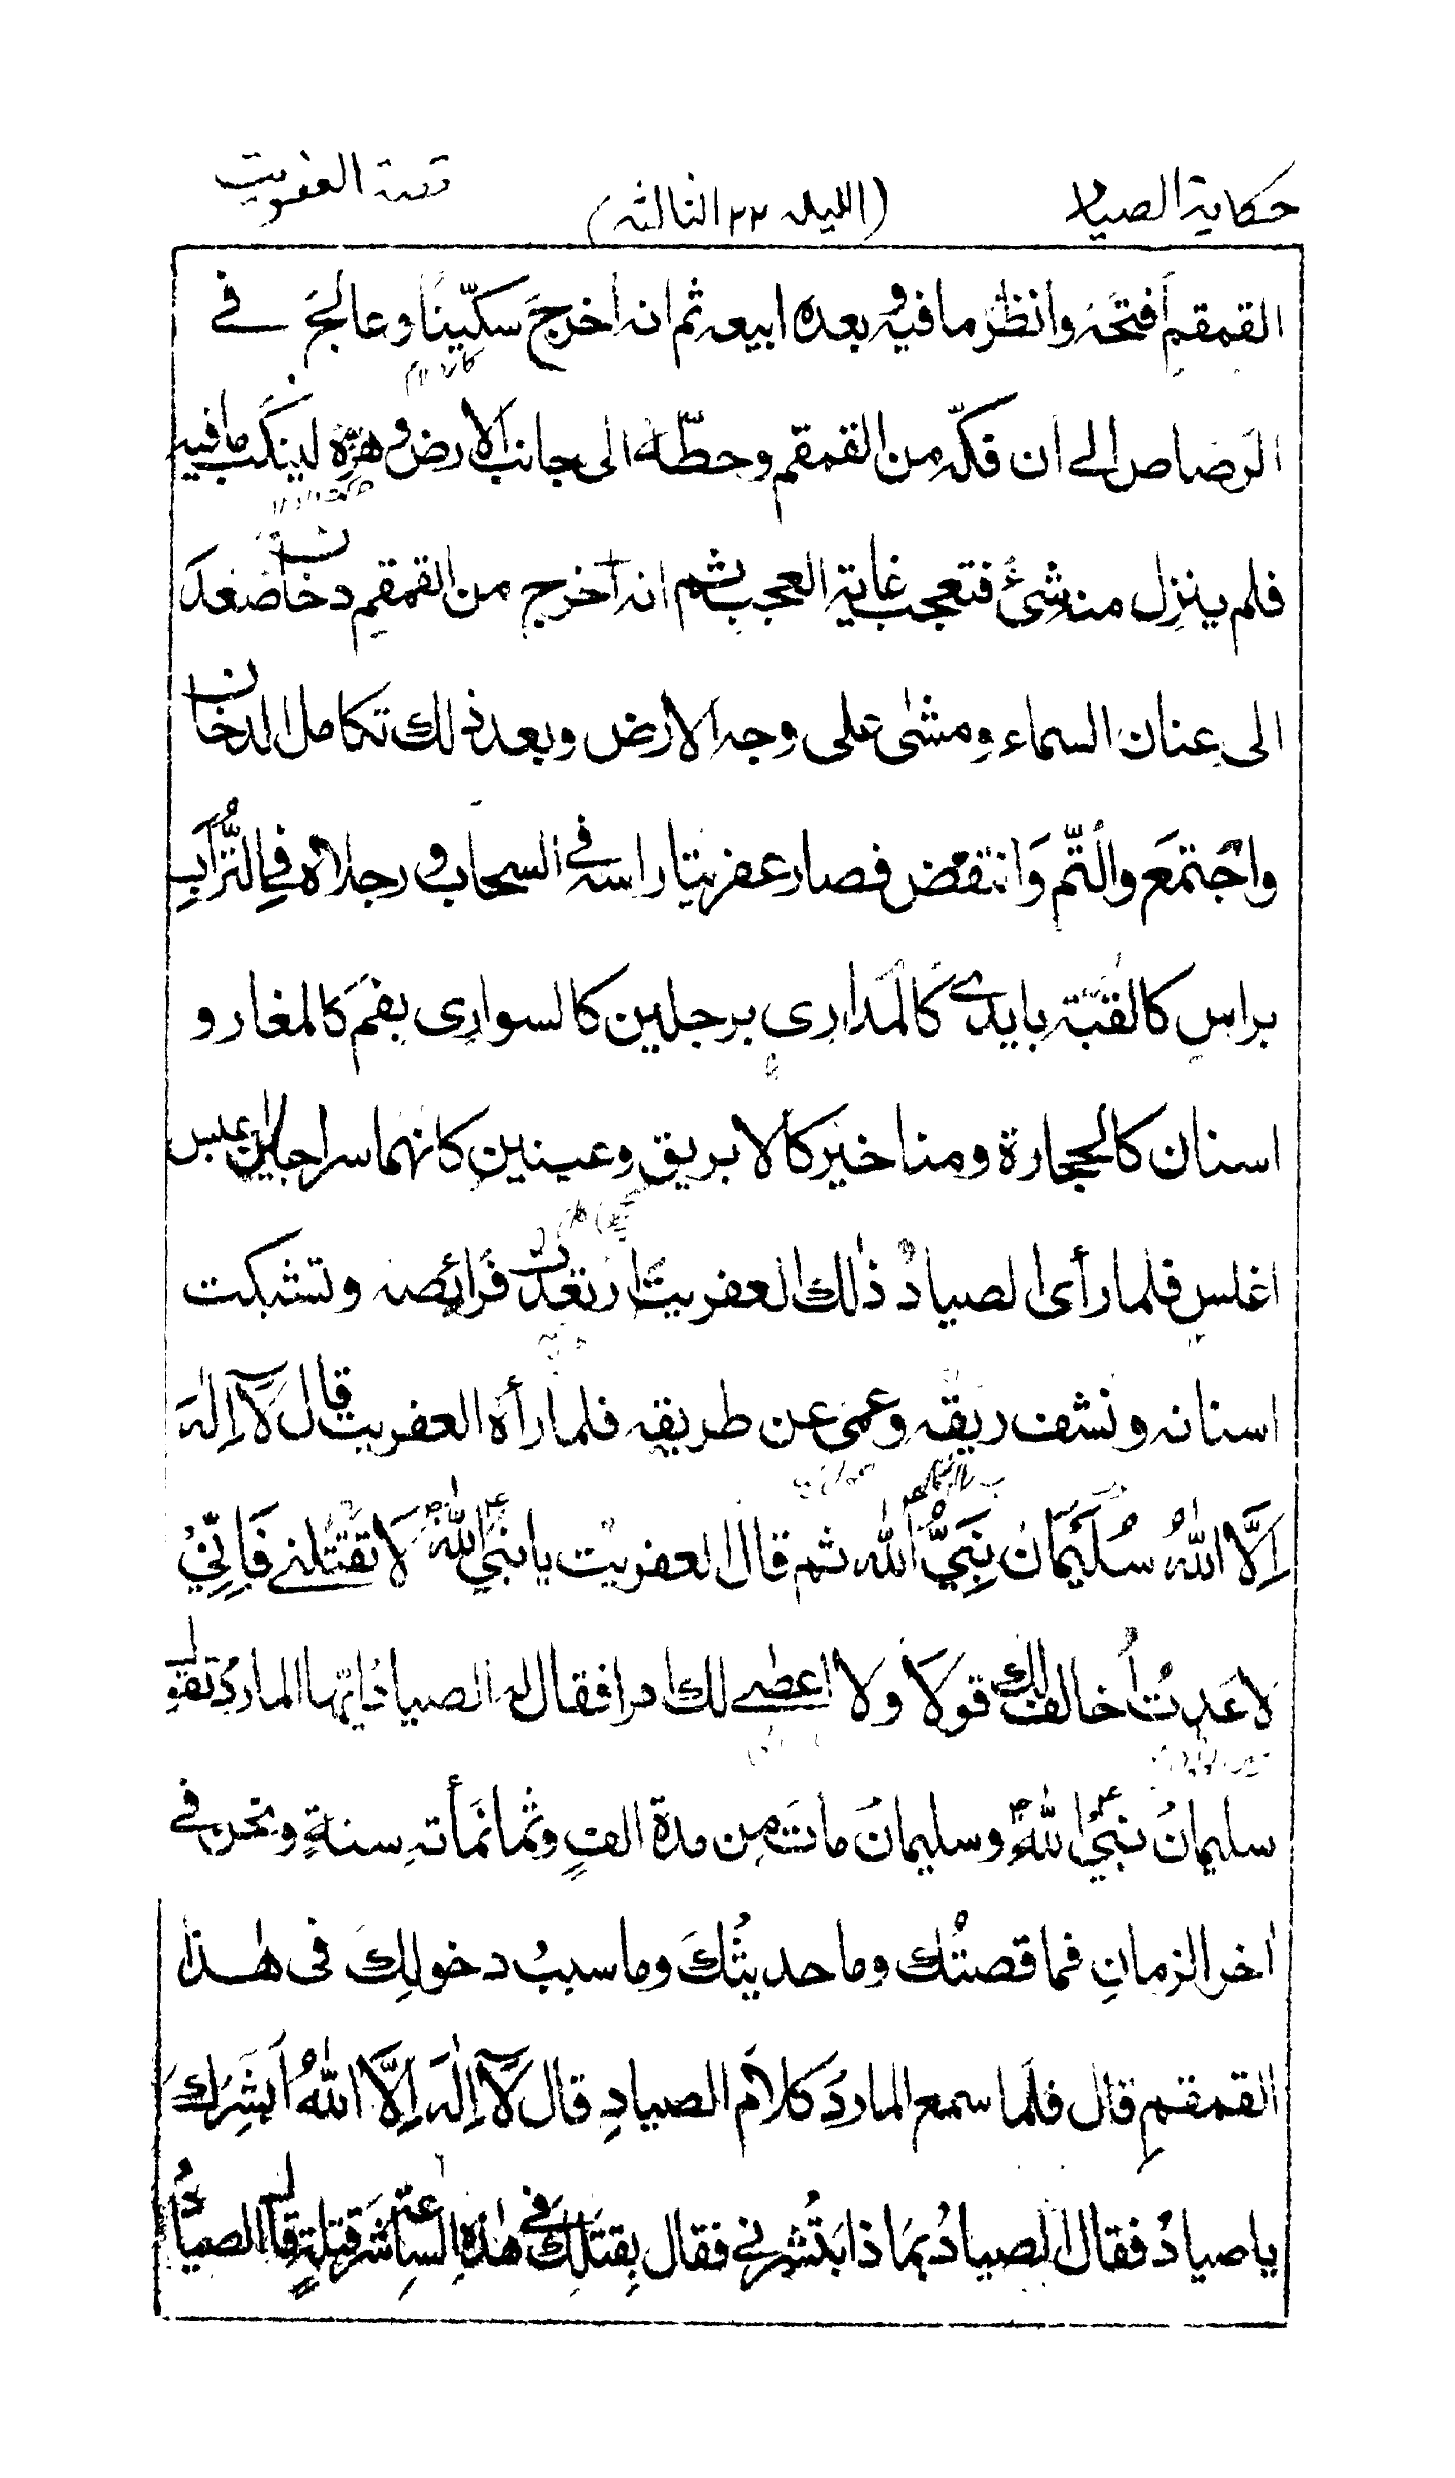 حكاية الصياد (الليلة ٢٢ الثالثة) قصة العفريت
القمقم اَفتحَه وانظُر ما فيه و بعده ابيعه ثم انه اخرجَ سكّينًا وعالجَ في
الرَصاص الى ان فكّه من القمقم وحطّه الى جانب الارض وهزّه لينكبّ ما فيه
فلم ينزل منه شئٌ فتعجب غاية العجب ثم انه اخرج من القمقمِ دخان صَعدَ
الى عِنان السماء ومشىٰ على وجه الارض وبعد ذلك تكامل الدخان
واجْتمَعَ والْتمّ وَانتقض فصار عفريتا راسه في السحاب و رجلاه في التُّرابِ
براسٍ كالقبّة بايدي كالمَدارى برجلين كالسوارِى بفمَ كالمغار و
اسنان كالحجارة ومناخيَر كالابريق وعينين كانهما سراجين اعبس
اغلس فلما رأى الصيادُ ذٰلك العفريتَ ارتعدت فَرائِصه وتشبكت
اسنانه ونشف ريقه وعمى عن طريقه فلما رأه العفريت قال لَآ اِلٰهَ
اِلَّا اللّٰهُ سُلَيْمَانُ نَبِيُّ اللّٰه ثم قال العفريت يا نبىَّ اللّٰه لَا تَقتُلنے فَاِنّىْ
لاعَدِتُ اُخالف لك قولاَ ولا اعصٰے لك امرا فقال له الصيادُ ايّها الماردُ تقول
سليمانُ نبىُّ اللّٰه وسليمانُ ماتَ مِن مدة الفٍ وثمانمأتهِ سنةٍ ونحن في
اٰخر الزمانِ فما قصتُك وما حديثُكَ وما سببُ دخولِكَ فى هٰذا
القمقمِ قال فلَما سمع الماردُ كلامَ الصيادِ قال لَآ اِلٰهَ اِلَّا اللّٰهُ اَبشِرِكَ
يا صيادُ فقال الصيادُ بمَا ذا بَتُشرنى فقال بِقتلِكَ في هٰذهِ الساعة اشر قتلةٍ قال الصيّادُ